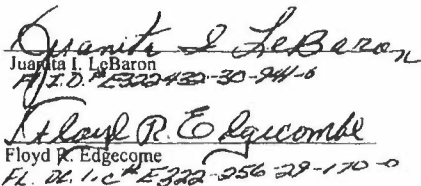 Juanita I LeBaron
Juanita I. LeBaron
Fl I.D. # E322432-30-941-0
Floyd R. Edgecombe
Floyd R. Edgecome
FL. DL. I.C# E322-256-29-170-0